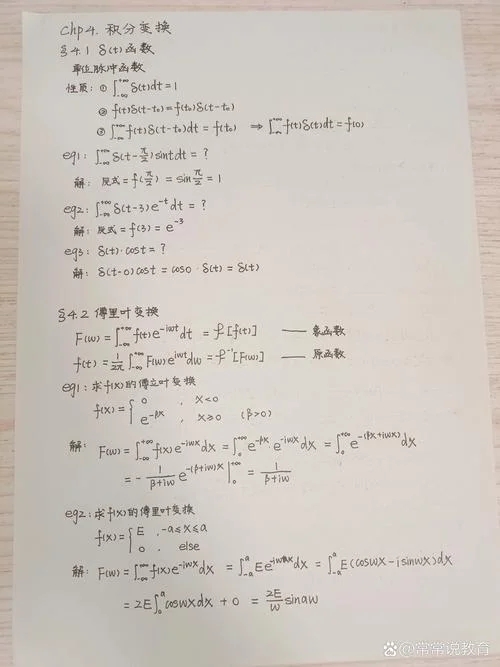 Chp4. 积分变换
§4.1 δ(t)函数
单位脉冲函数
性质: ① ∫_{-∞}^{+∞} δ(t)dt = 1
② f(t)δ(t-t₀) = f(t₀)δ(t-t₀)
③ ∫_{-∞}^{+∞} f(t)δ(t-t₀)dt = f(t₀) ⇒ ∫_{-∞}^{+∞} f(t)δ(t)dt = f(0)
eg1: ∫_{-∞}^{+∞} δ(t-π/2)sintdt = ?
解: 原式 = f(π/2) = sin π/2 = 1
eg2: ∫_{-∞}^{+∞} δ(t-3)e^{-t}dt = ?
解: 原式 = f(3) = e^{-3}
eg3: δ(t)·cost = ?
解: δ(t-0)cost = cos0·δ(t) = δ(t)
§4.2 傅里叶变换
F(w) = ∫_{-∞}^{+∞} f(t)e^{-iwt}dt = ℱ[f(t)] —— 象函数
f(t) = 1/2π ∫_{-∞}^{+∞} F(w)e^{iwt}dw = ℱ⁻¹[F(w)] —— 原函数
eg1: 求f(x)的傅立叶变换
f(x) = { 0 , x<0
e^{-βx} , x≥0 (β>0)
解: F(w) = ∫_{-∞}^{+∞} f(x)e^{-iwx}dx = ∫_0^{+∞} e^{-βx}·e^{-iwx}dx = ∫_0^{+∞} e^{-(βx+iwx)}dx
= -1/(β+iw) e^{-(β+iw)x} |_0^{+∞} = 1/(β+iw)
eg2: 求f(x)的傅里叶变换
f(x) = { E , -a≤x≤a
0 , else
解: F(w) = ∫_{-∞}^{+∞} f(x)e^{-iwx}dx = ∫_{-a}^{a} Ee^{-iwx}dx = ∫_{-a}^{a} E(coswx-isinwx)dx
= 2E∫_0^a coswxdx + 0 = 2E/w sinaw
@常常说教育